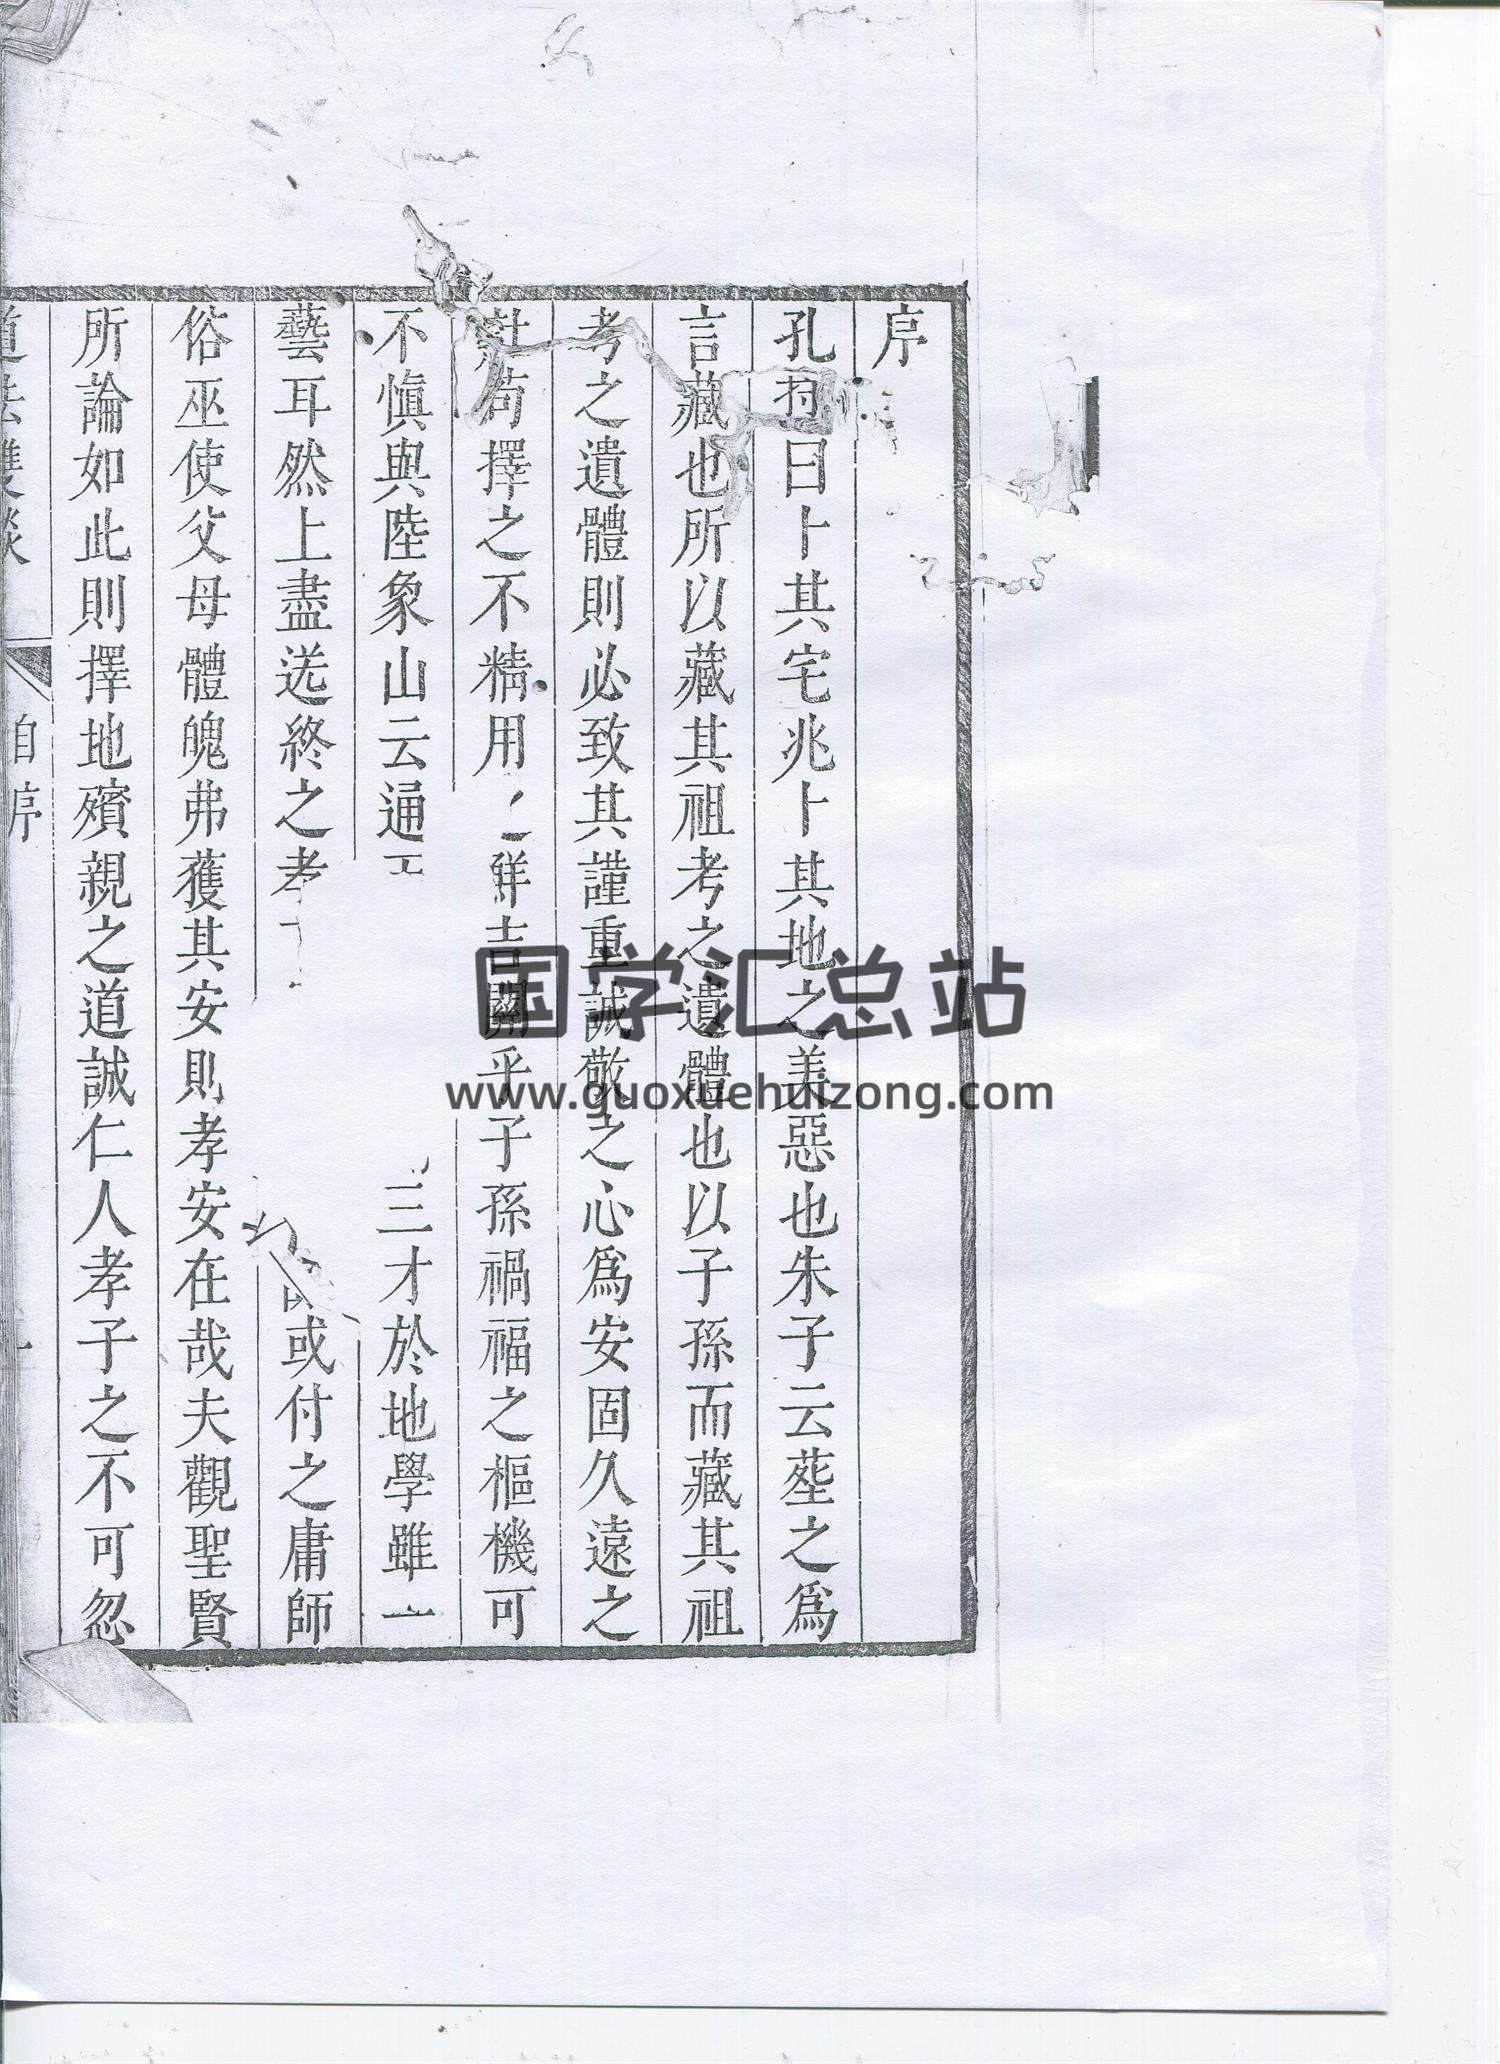 序
孔 曰卜其宅兆卜其地之美惡也朱子云塟之爲
言藏也所以藏其祖考之遺體也以子孫而藏其祖
考之遺體則必致其謹重誠敬之心爲安固久遠之
計苟擇之不精用 鮮吉關乎子孫禍福之樞機可
不愼與陸象山云通 三才於地學雖一
藝耳然上盡送終之孝 或付之庸師
俗巫使父母體魄弗獲其安則孝安在哉夫觀聖賢
所論如此則擇地殯親之道誠仁人孝子之不可忽
道法雙談 自序
国学汇总站
www.guoxuehuizong.com